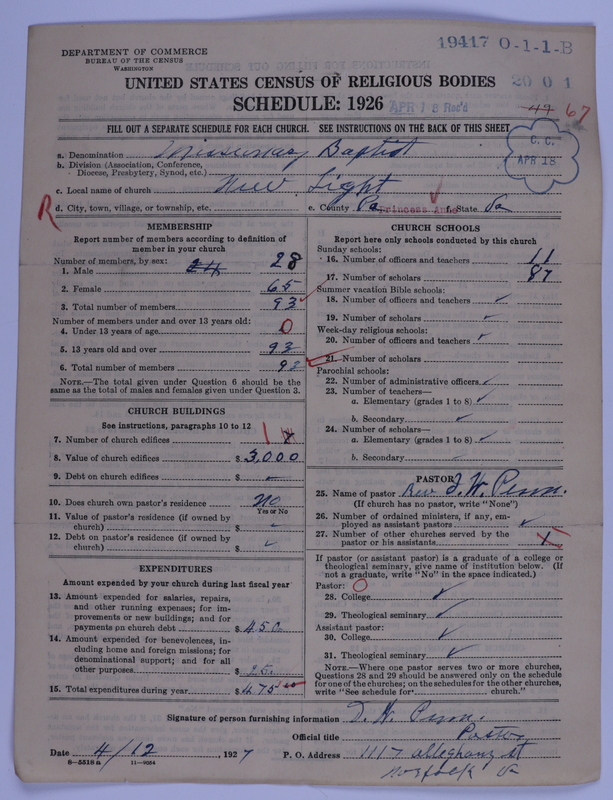 DEPARTMENT OF COMMERCE
BUREAU OF THE CENSUS
WASHINGTON
19417 O-1-1-B
UNITED STATES CENSUS OF RELIGIOUS BODIES
2001
SCHEDULE: 1926
APR 18 Rec'd
47 67
FILL OUT A SEPARATE SCHEDULE FOR EACH CHURCH. SEE INSTRUCTIONS ON THE BACK OF THIS SHEET
C. C.
APR 18
a. Denomination Missionary Baptist
b. Division (Association, Conference, Diocese, Presbytery, Synod, etc.)
c. Local name of church New Light
R
d. City, town, village, or township, etc. e. County Pa Princess Anne f. State Va
MEMBERSHIP
Report number of members according to definition of member in your church
Number of members, by sex:
1. Male 24 28
2. Female 65
3. Total number of members 93
Number of members under and over 13 years old:
4. Under 13 years of age 0
5. 13 years old and over 93
6. Total number of members 93
NOTE.—The total given under Question 6 should be the same as the total of males and females given under Question 3.
CHURCH BUILDINGS
See instructions, paragraphs 10 to 12
7. Number of church edifices 1
8. Value of church edifices $ 3,000
9. Debt on church edifices $
10. Does church own pastor's residence No
Yes or No
11. Value of pastor's residence (if owned by church) $
12. Debt on pastor's residence (if owned by church) $
EXPENDITURES
Amount expended by your church during last fiscal year
13. Amount expended for salaries, repairs, and other running expenses; for improvements or new buildings; and for payments on church debt $ 450
14. Amount expended for benevolences, including home and foreign missions; for denominational support; and for all other purposes $ 25.
15. Total expenditures during year $ 475.00
CHURCH SCHOOLS
Report here only schools conducted by this church
Sunday schools:
16. Number of officers and teachers 11
17. Number of scholars 87
Summer vacation Bible schools:
18. Number of officers and teachers
19. Number of scholars
Week-day religious schools:
20. Number of officers and teachers
21. Number of scholars
Parochial schools:
22. Number of administrative officers
23. Number of teachers—
a. Elementary (grades 1 to 8)
b. Secondary
24. Number of scholars—
a. Elementary (grades 1 to 8)
b. Secondary
PASTOR
25. Name of pastor Rev J. W. Penn.
(If church has no pastor, write "None")
26. Number of ordained ministers, if any, employed as assistant pastors
27. Number of other churches served by the pastor or his assistants 1
If pastor (or assistant pastor) is a graduate of a college or theological seminary, give name of institution below. (If not a graduate, write "No" in the space indicated.)
Pastor: O
28. College
29. Theological seminary
Assistant pastor:
30. College
31. Theological seminary
NOTE.—Where one pastor serves two or more churches, Questions 28 and 29 should be answered only on the schedule for one of the churches; on the schedules for the other churches, write "See schedule for church."
Signature of person furnishing information J. W. Penn.
Official title Pastor
Date 4/12, 1927 P. O. Address 1117 Alleghany St
8-5518 a 11-9054
Norfolk Va